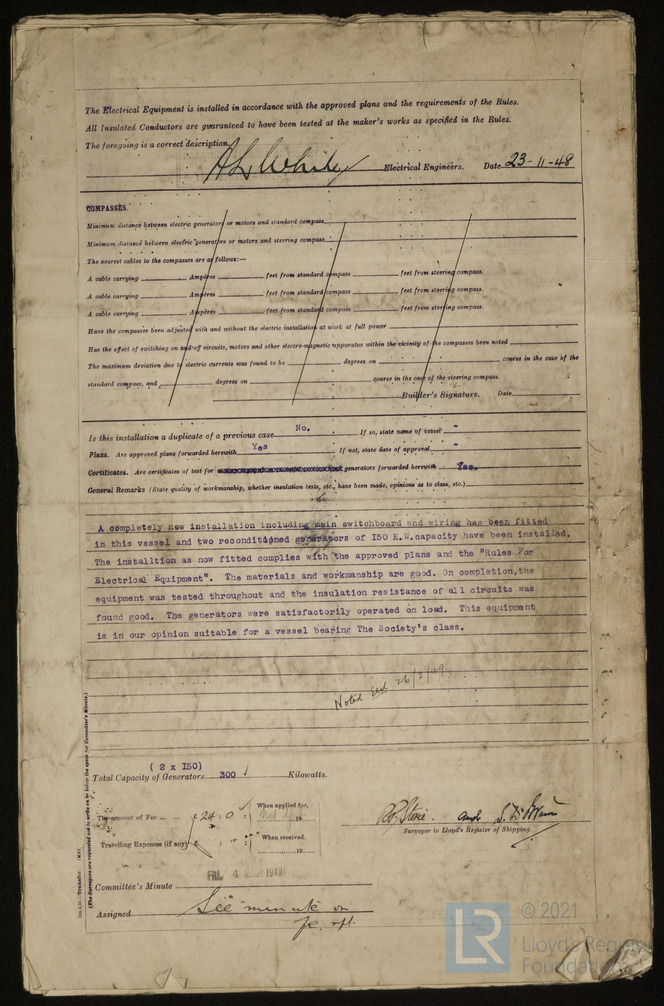 The Electrical Equipment is installed in accordance with the approved plans and the requirements of the Rules.
All Insulated Conductors are guaranteed to have been tested at the maker's works as specified in the Rules.
The foregoing is a correct description.
Electrical Engineers. Date 23-11-48
COMPASSES.
Minimum distance between electric generators or motors and standard compass
Minimum distance between electric generators or motors and steering compass
The nearest cables to the compasses are as follows:—
A cable carrying Ampères feet from standard compass feet from steering compass.
A cable carrying Ampères feet from standard compass feet from steering compass.
A cable carrying Ampères feet from standard compass feet from steering compass.
Have the compasses been adjusted with and without the electric installation at work at full power
Has the effect of switching on and off circuits, motors and other electro-magnetic apparatus within the vicinity of the compasses been noted
The maximum deviation due to electric currents was found to be degrees on course in the case of the
standard compass, and degrees on course in the case of the steering compass.
Builder's Signature. Date
Is this installation a duplicate of a previous case No. If so, state name of vessel -
Plans. Are approved plans forwarded herewith Yes If not, state date of approval -
Certificates. Are certificates of test for generators forwarded herewith Yes.
General Remarks (State quality of workmanship, whether insulation tests, etc., have been made, opinions as to class, etc.)
A completely new installation including main switchboard and wiring has been fitted
in this vessel and two reconditioned generators of 150 K.W.capacity have been installed.
The installtion as now fitted complies with the approved plans and the "Rules For
Electrical Equipment". The materials and workmanship are good. On completion,the
equipment was tested throughout and the insulation resistance of all circuits was
found good. The generators were satisfactorily operated on load. This equipment
is in our opinion suitable for a vessel bearing The Society's class.
Noted 26/2/49
(2 x 150)
Total Capacity of Generators 300 Kilowatts.
The amount of Fee ... £ 24 : 0 : When applied for, 19
Travelling Expenses (if any) £ : : When received, 19
and
Surveyor to Lloyd's Register of Shipping.
FRI. 4 MAR 1949
Committee's Minute
Assigned See minute on
rpt.
(The Surveyors are requested not to write on or below the space for Committee's Minute.)
LR © 2021
Lloyd's Register
Foundation